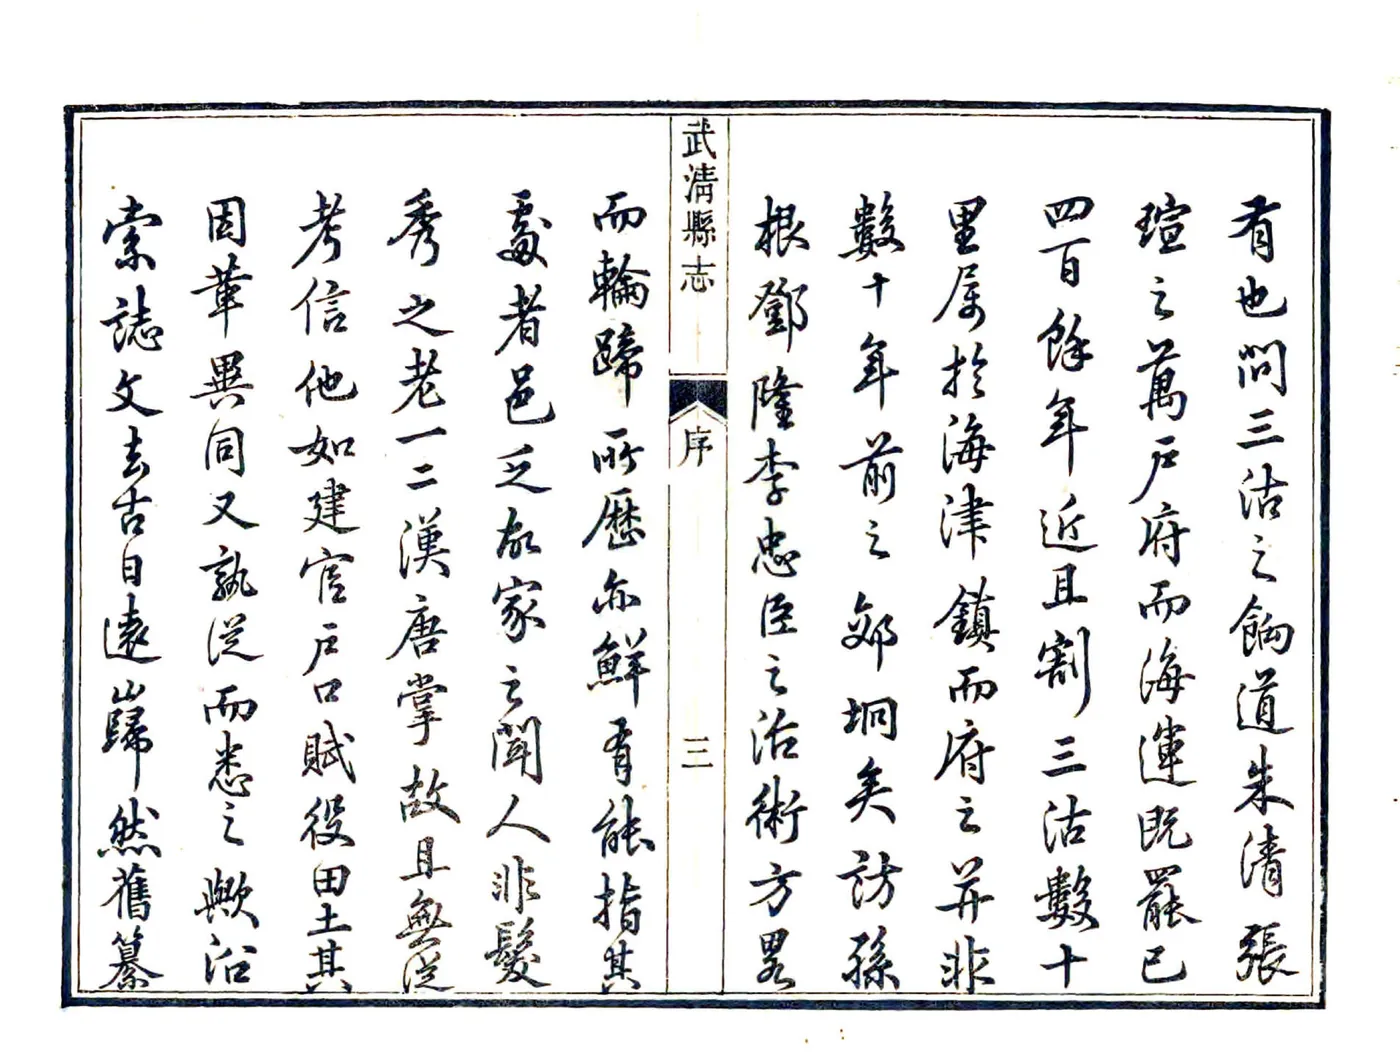 有也問三沽之餉道朱清張
瑄之萬戶府而海運既罷已
四百餘年近且割三沽數十
里属於海津鎮而府之并非
數十年前之郊坰矣訪孫
根鄧隆李忠臣之治術方畧
武清縣志
序
三
而輪蹄所歷亦鮮有能指其
處者邑乏故家之聞人非髮
秀之老一二漢唐掌故且無從
考信他如建官戶口賦役田土其
因革異同又孰從而悉之歟沿
索誌文去古日遠巋然舊纂